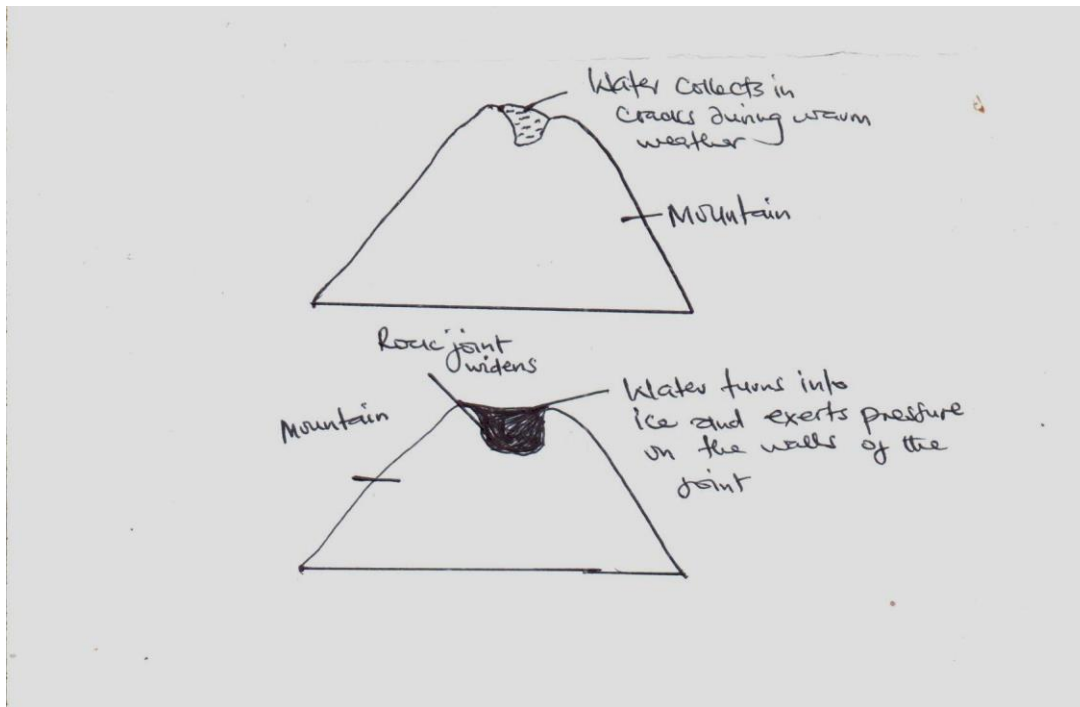 Water collects in
cracks during warm
weather
Mountain
Rock joint
widens
Mountain
Water turns into
ice and exerts pressure
on the walls of the
joint